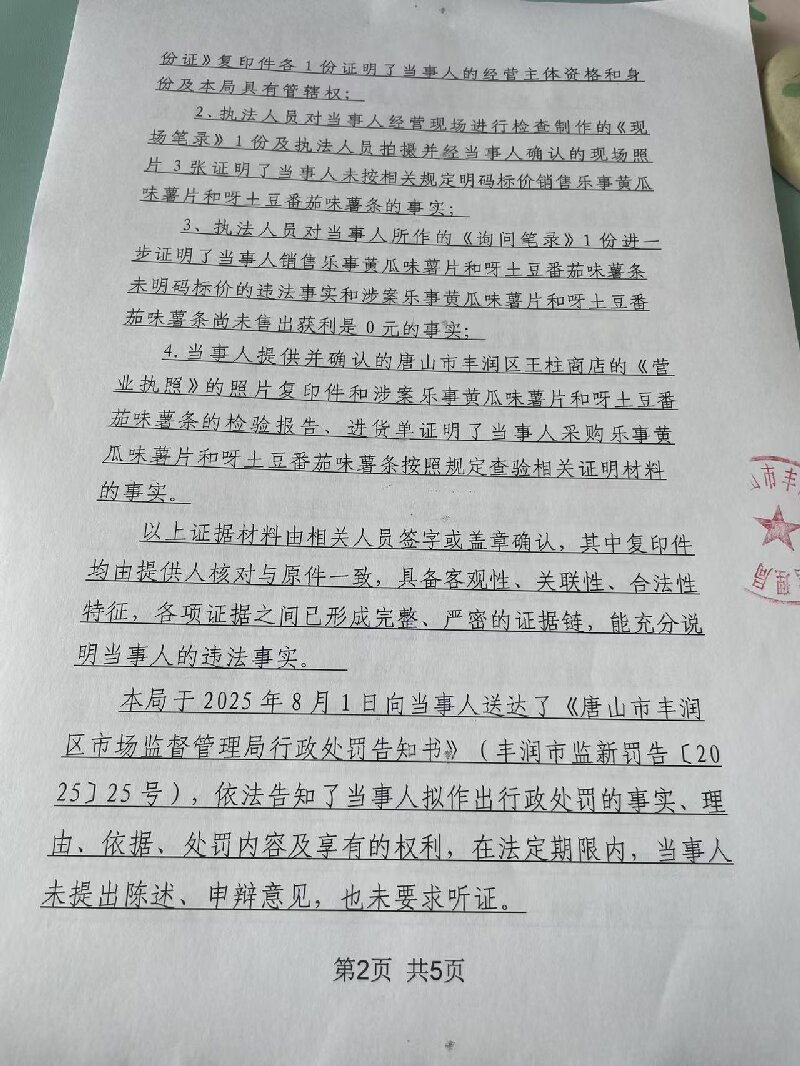 份证》复印件各 1 份证明了当事人的经营主体资格和身
份及本局具有管辖权；
2.执法人员对当事人经营现场进行检查制作的《现
场笔录》1 份及执法人员拍摄并经当事人确认的现场照
片 3 张证明了当事人未按相关规定明码标价销售乐事黄瓜
味薯片和呀土豆番茄味薯条的事实；
3、执法人员对当事人所作的《询问笔录》1 份进一
步证明了当事人销售乐事黄瓜味薯片和呀土豆番茄味薯条
未明码标价的违法事实和涉案乐事黄瓜味薯片和呀土豆番
茄味薯条尚未售出获利是 0 元的事实；
4.当事人提供并确认的唐山市丰润区王柱商店的《营
业执照》的照片复印件和涉案乐事黄瓜味薯片和呀土豆番
茄味薯条的检验报告、进货单证明了当事人采购乐事黄
瓜味薯片和呀土豆番茄味薯条按照规定查验相关证明材料
的事实。
以上证据材料由相关人员签字或盖章确认，其中复印件
均由提供人核对与原件一致，具备客观性、关联性、合法性
特征，各项证据之间已形成完整、严密的证据链，能充分说
明当事人的违法事实。
本局于 2025 年 8 月 1 日向当事人送达了《唐山市丰润
区市场监督管理局行政处罚告知书》（丰润市监新罚告〔20
25〕25 号），依法告知了当事人拟作出行政处罚的事实、理
由、依据、处罚内容及享有的权利，在法定期限内，当事人
未提出陈述、申辩意见，也未要求听证。
第2页 共5页
市丰
理局